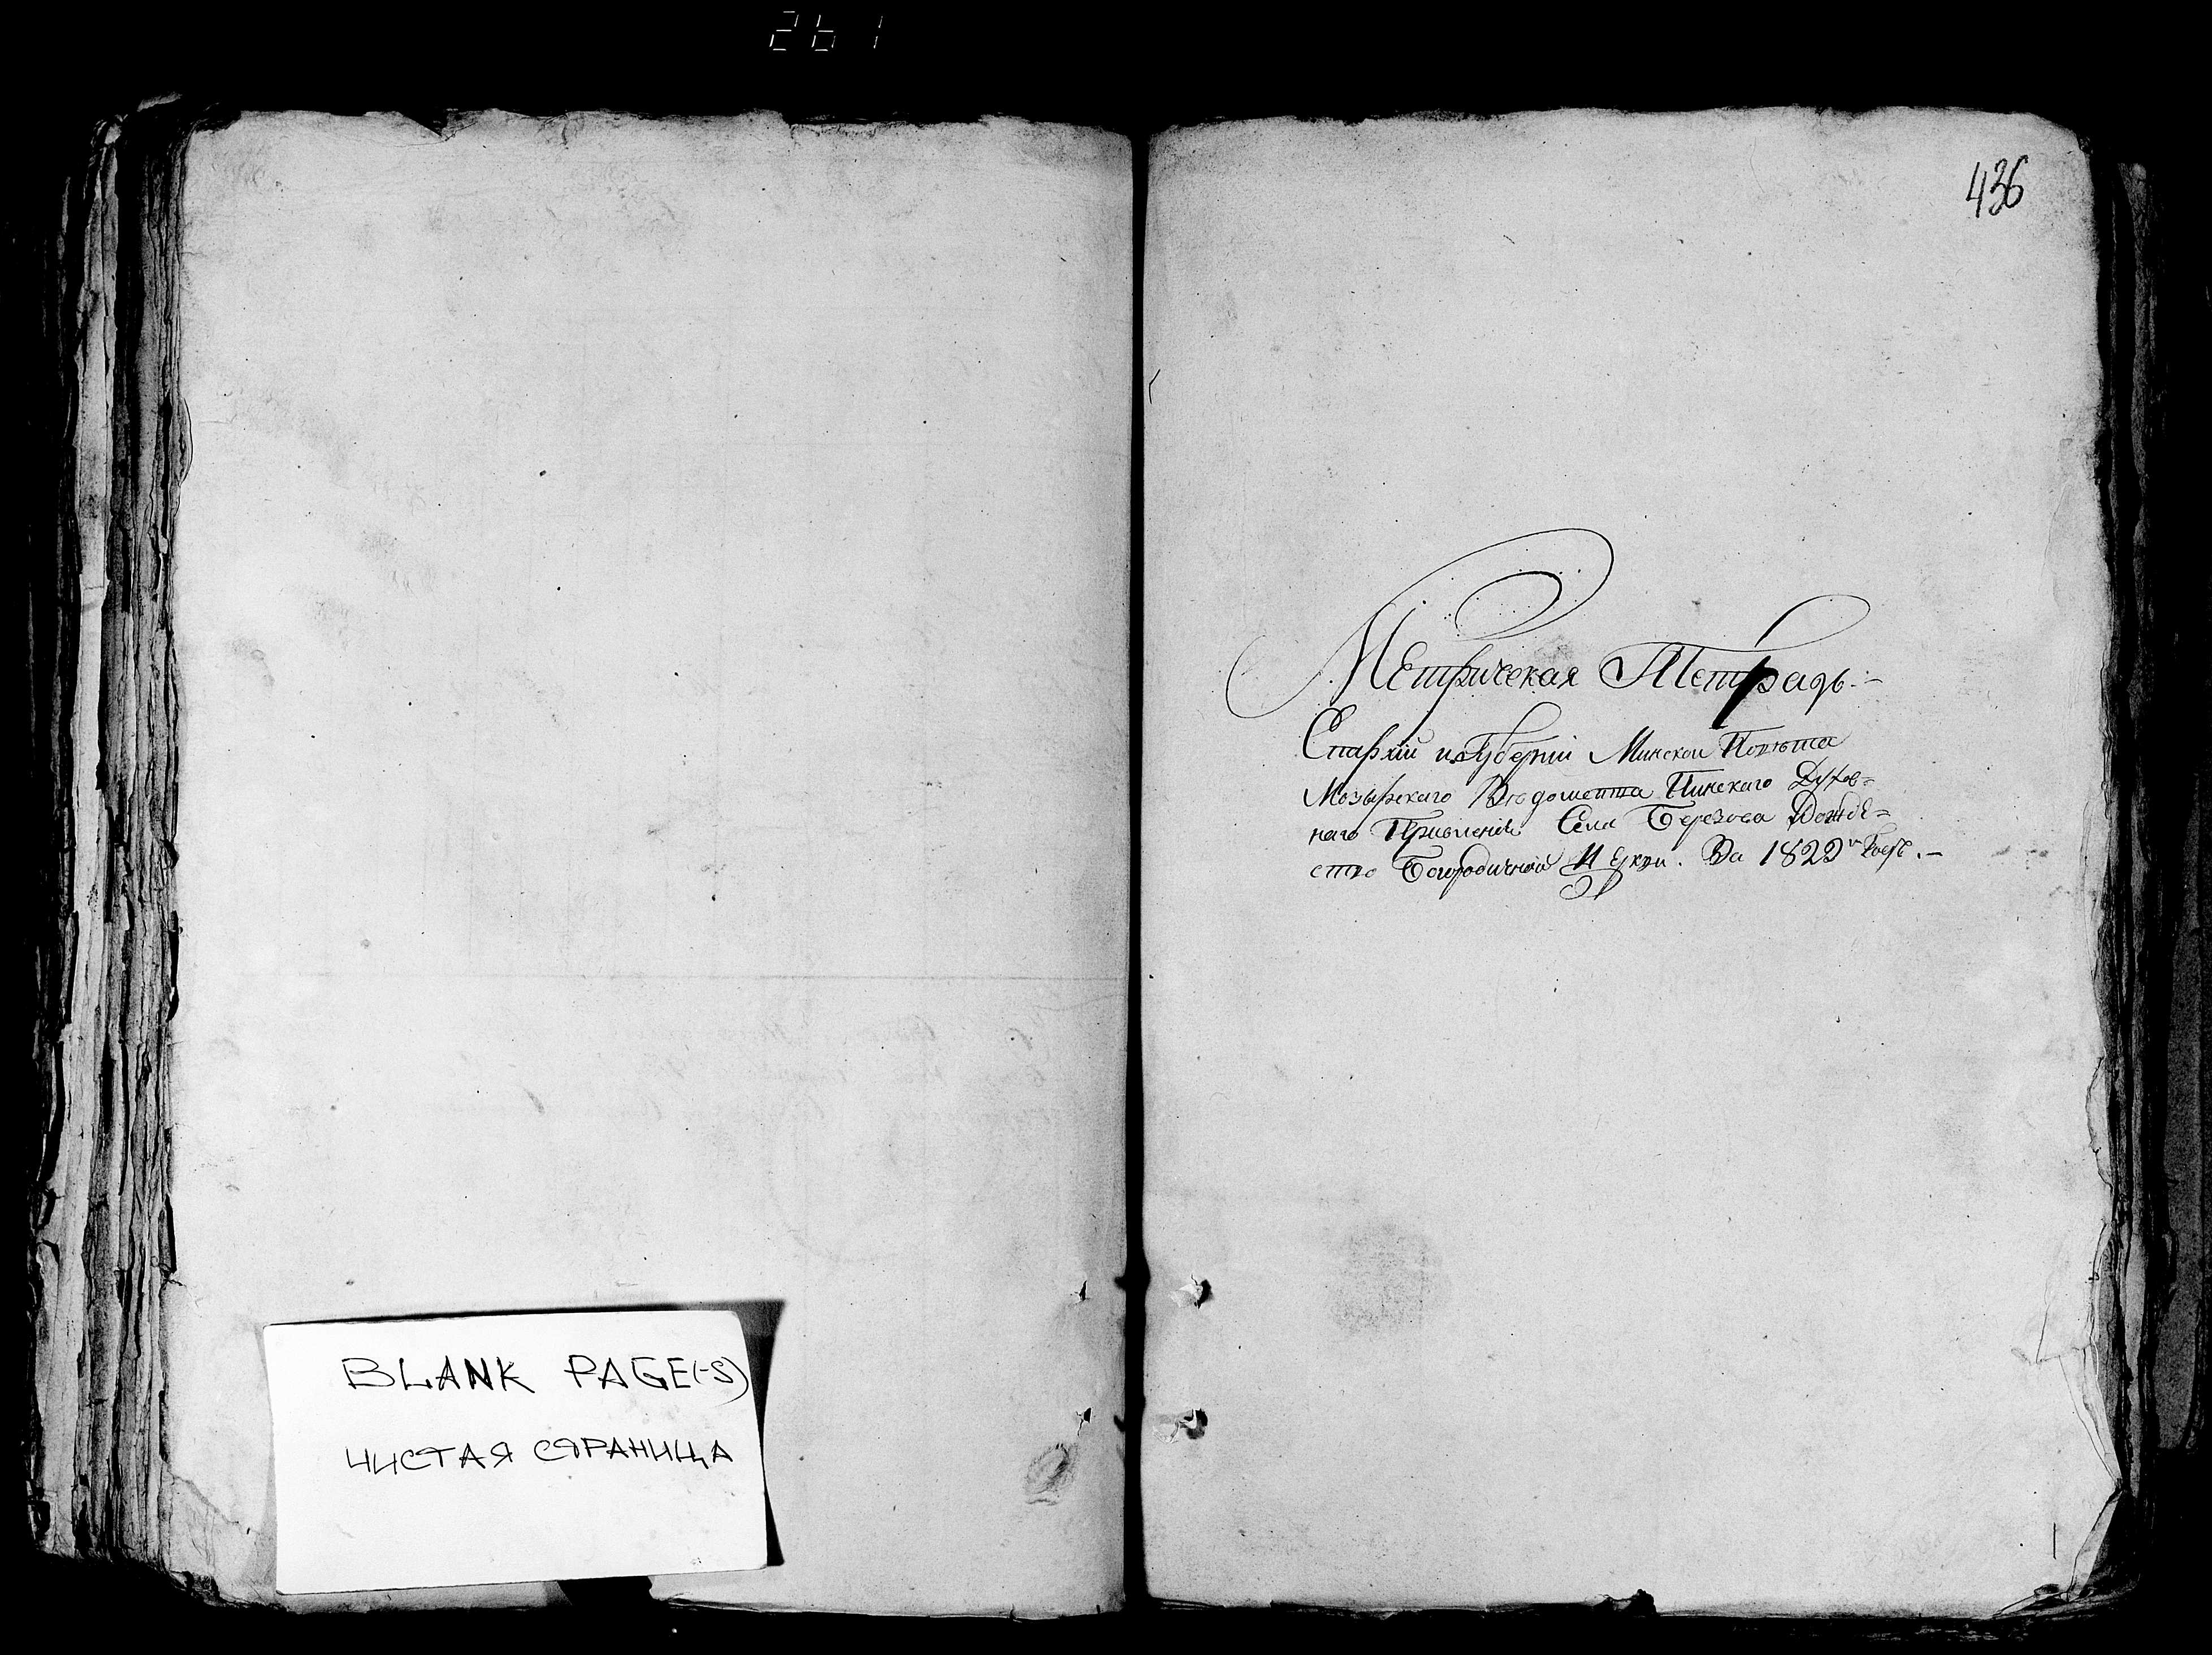 261
436
Метрическая Тетрадь.-
Епархіи и Губерніи Минской Повѣта
Мозырскаго Вѣдомства Пинскаго Духов=
наго Правленія Села Березова Рождe=
ство Богородичной Церкви. За 1822й Годъ.-
BLANK PAGE(-S)
ЧИСТАЯ СТРАНИЦА